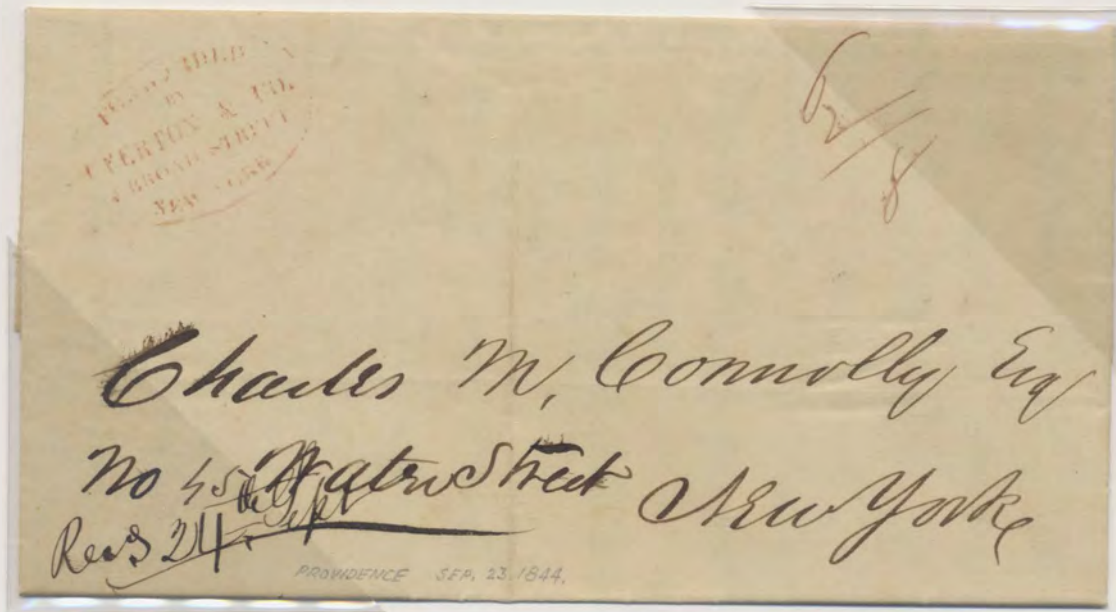 BY
OVERTON & CO.
BROAD STREET
NEW YORK
Charles M, Connolly Esq
No 45 Water Street New York
Recd 24. Sept
PROVIDENCE SEP. 23. 1844.